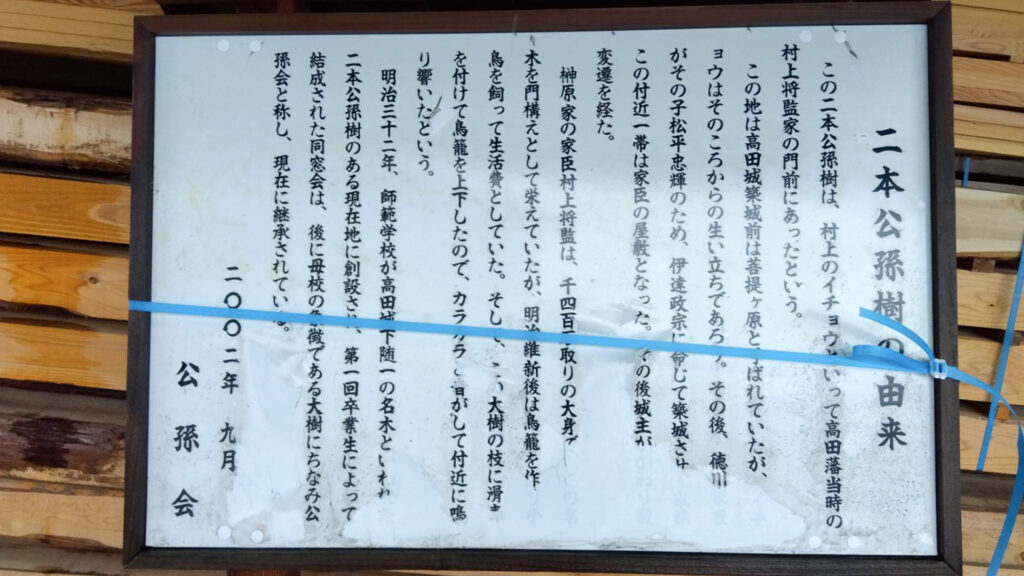 二本公孫樹の由来
この二本公孫樹は、村上のイチョウといって高田藩当時の
村上将監家の門前にあったという。
この地は高田城築城前は菩提ヶ原と ばれていたが、
ョウはそのころからの生い立ちであろう。その後、徳川
がその子松平忠輝のため、伊達政宗に命じて築城さ
この付近一帯は家臣の屋敷となった。その後城主が
変遷を経た。
榊原家の家臣村上将監は、千四百 取りの大身で
木を門構えとして栄えていたが、明治維新後は鳥籠を作
鳥を飼って生活費としていた。そして、この大樹の枝に滑
を付けて鳥籠を上下したので、カラカラ 音がして付近に鳴
り響いたという。
明治三十二年、師範学校が高田城下随一の名木といわれ
二本公孫樹のある現在地に創設され、第一回卒業生によって
結成された同窓会は、後に母校の象徴である大樹にちなみ公
孫会と称し、現在に継承されている。
二〇〇二年 九月
公孫会